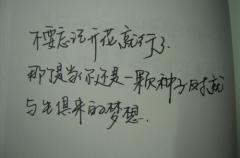 不要忘记开花就行了.
那可是当你还是一颗种子时就
与生俱来的梦想.